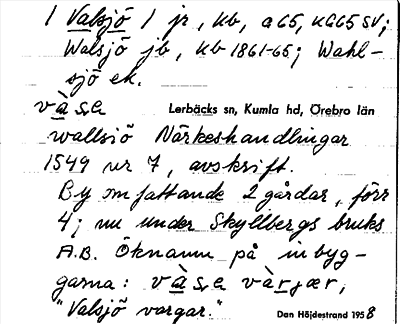 1 Valsjö 1 jr, kb, a65, KG65 SV;
Walsjö jb, kb 1861-65; Wahl-
sjö ek.
Lerbäcks sn, Kumla hd, Örebro län
wallsiö Närkeshandlingar
1549 nr 7, avskrift.
By omfattande 2 gårdar, förr
4; nu under Skyllbergs bruks
A.B. Öknamn på inbyg-
garna: 
"Valsjö vargar."
Dan Höjdestrand 1958